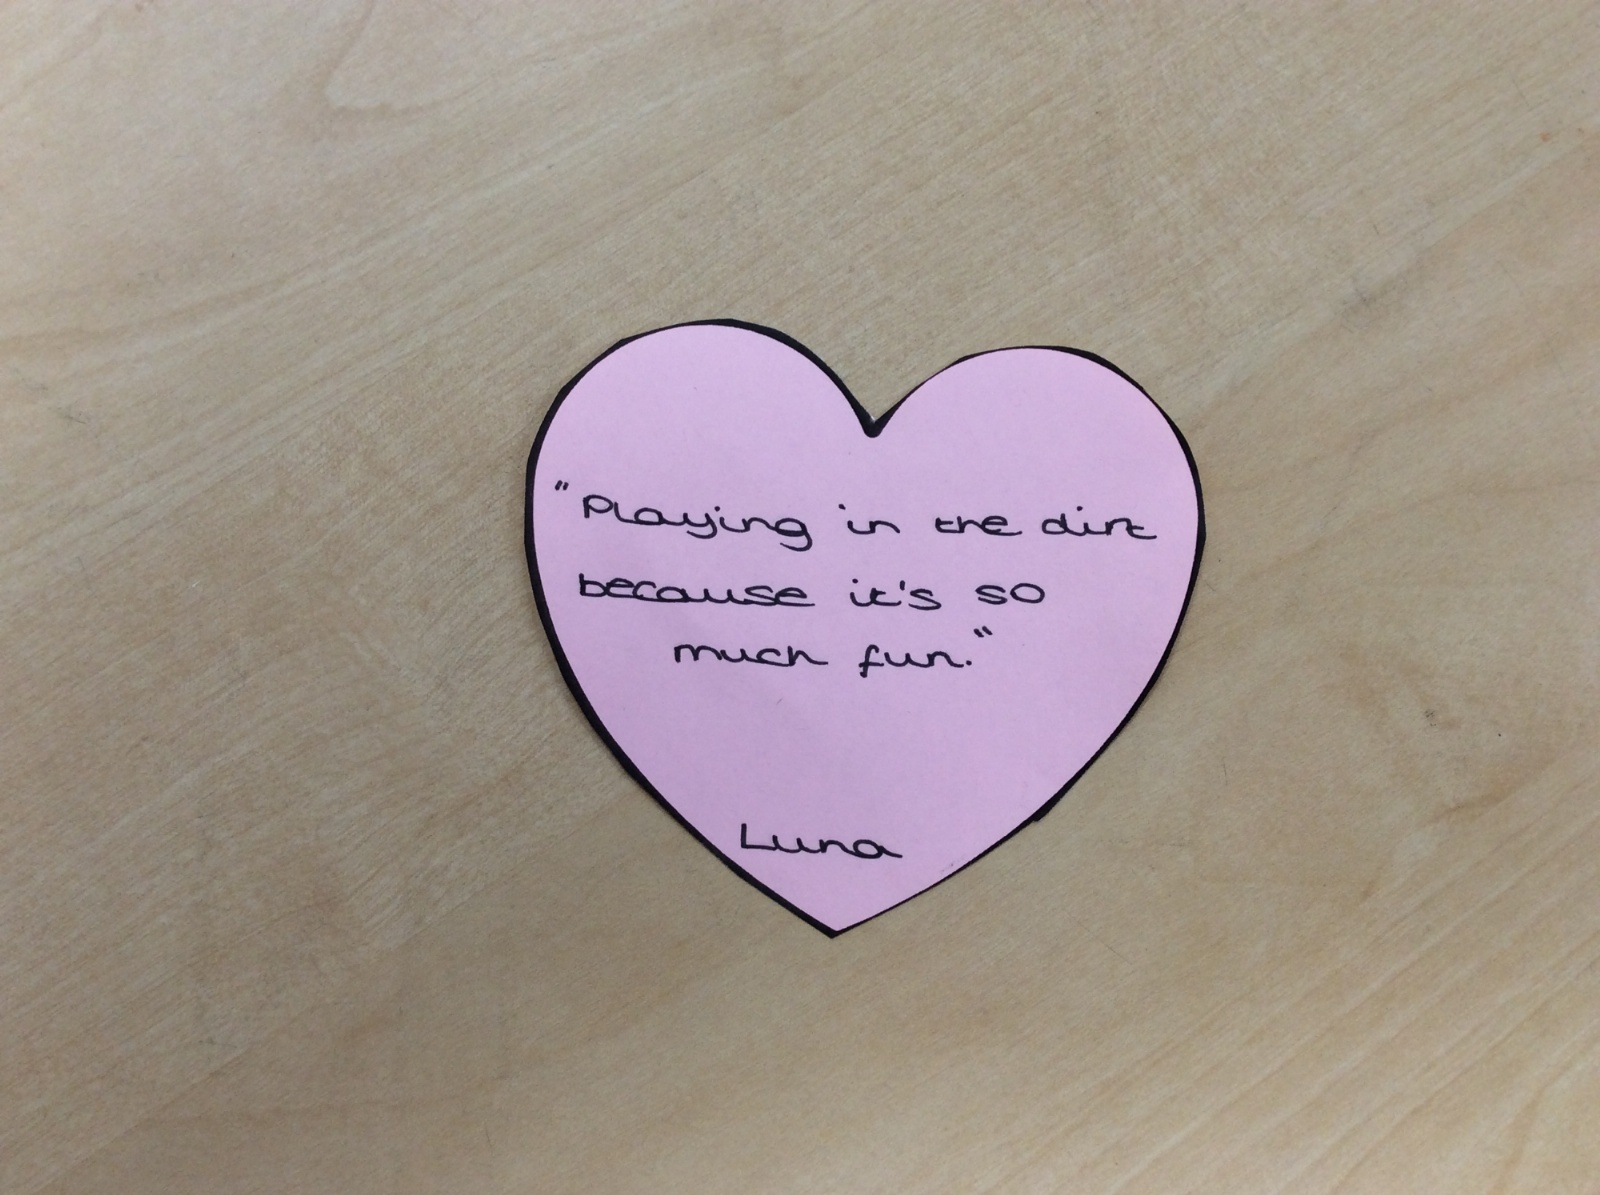 "Playing in the dirt
because it's so
much fun."
Luna